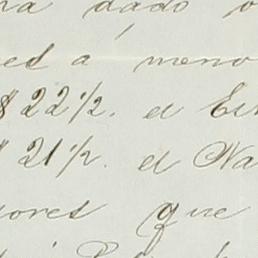 dado
ed á meno
$22 1/2. el
$21 1/2. el Na
ores que